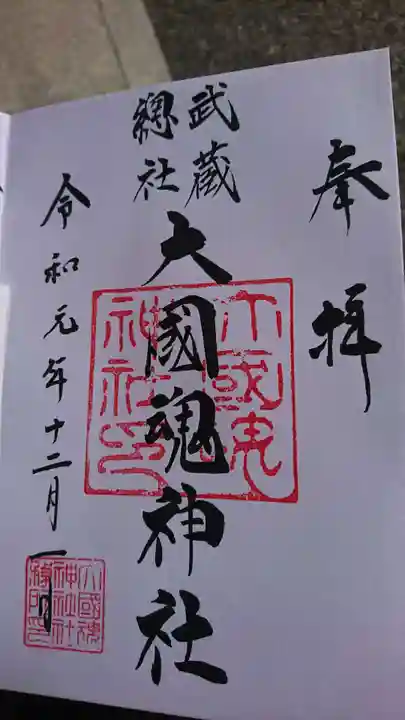 奉拝
武蔵
總社
大國魂神社
令和元年十二月一日
大國魂
神社印
大國魂
神社社